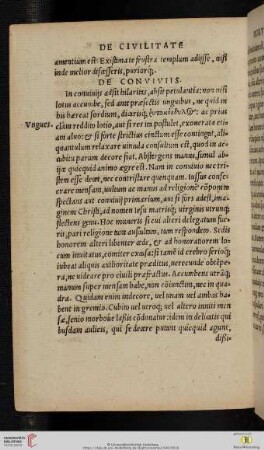 DE CIVILITATE
amentium est. Existimate frustra templum adiisse, nisi
inde melior discesseris, puriorq́;.
DE CONVIVIIS.
In conuiuijs adsit hilaritas, absit petulantia: non nisi
lotus accumbe, sed ante præsectis unguibus, ne quid in
his hæreat sordium, dicarisq́; ac prius
clam reddito lotio, aut si res ita postulet, exonerata eti
am aluo: & si forte strictius cinctum esse contingat, ali-
quantulum relaxare uincula consultum est, quod in ac-
cubitu parum decore fiat. Abstergens manus, simul abi-
ce quicquid animo ægre est. Nam in conuiuio nec tri-
stem esse decet, nec contristare quenquam. Iussus conse-
crare mensam, uultum ac manus ad religionem componito
spectans aut conuiuij primarium, aut si fors adest, ima-
ginem Christi, ad nomen Iesu matrisq́; uirginis utrunq́;
flectens genu. Hoc muneris si cui alteri delegatum fue-
rit, pari religione tum auscultato, tum respondeto. Sedis
honorem alteri libenter cede, & ad honoratiorem lo-
cum inuitatus, comiter excusa: si tamen id crebro serioq́;
iubeat aliquis authoritate præditus, uerecunde obtem-
pera, ne uidеare pro ciuili præfractus. Accumbens utranq́;
manum super mensam habe, non coniunctim, nec in qua-
dra. Quidam enim indecore, uel unam uel ambas ha-
bent in gremio. Cubito uel utroq́; uel altero inniti men-
sæ, senio morboue lassis condonatur: idem in delicatis qui
busdam aulicis, qui se decere putant quicquid agunt,
dissi-
Vngues.
UNIVERSITÄTS-
BIBLIOTHEK
HEIDELBERG
© Universitätsbibliothek Heidelberg